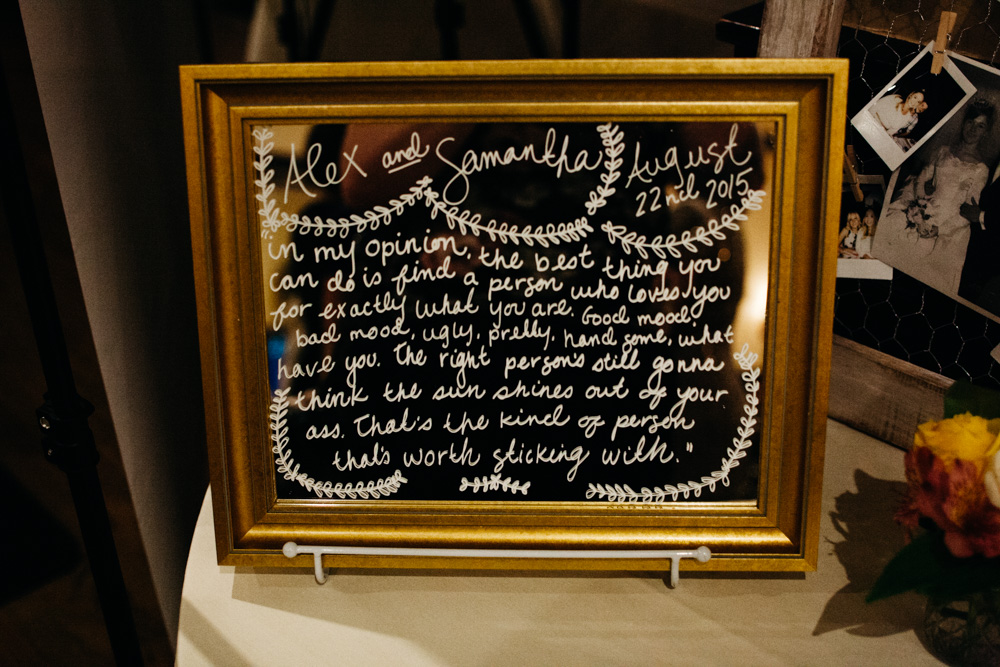 Alex and Samantha
August
22nd 2015
"in my opinion, the best thing you
can do is find a person who loves you
for exactly what you are. Good mood,
bad mood, ugly, pretty, handsome, what
have you. The right person's still gonna
think the sun shines out of your
ass. That's the kind of person
that's worth sticking with."